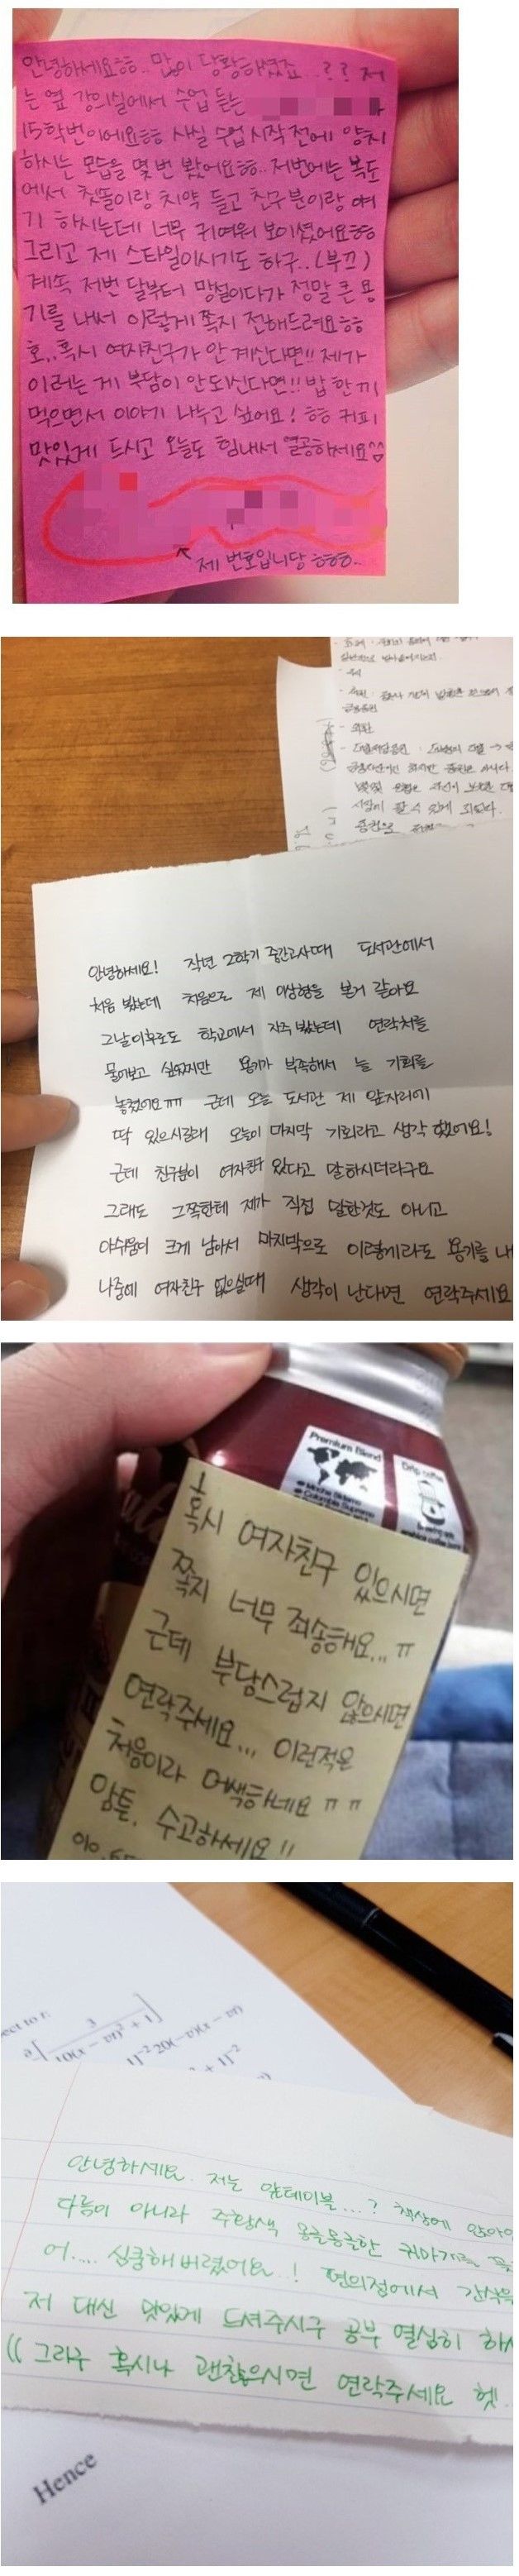 안녕하세요ㅎㅎ.. 많이 당황하셨죠..?? 저
는 옆 강의실에서 수업 듣는
15학번이에요ㅎㅎ 사실 수업 시작 전에 양치
하시는 모습을 몇 번 봤어요ㅎㅎ.. 저번에는 복도
에서 칫똘이랑 치약 들고 친구분이랑 얘
기 하시는데 너무 귀여워 보이셨어요ㅎㅎ
그리고 제 스타일이시기도 하구..(부끄)
계속 저번 달부터 망설이다가 정말 큰 용
기를 내서 이렇게 쪽지 전해드려요ㅎㅎ
호..혹시 여자친구가 안 계신다면!! 제가
이러는 게 부담이 안되신다면!! 밥 한 끼
먹으면서 이야기 나누고 싶어요! ㅎㅎ 커피
맛있게 드시고 오늘도 힘내서 열공하세요^^
제 번호입니당 ㅎㅎㅎ..
안녕하세요! 작년 2학기 중간고사때 도서관에서
처음 봤는데 처음으로 제 이상형을 본거 같아요
그날이후로도 학교에서 자주 봤는데 연락처를
물어보고 싶었지만 용기가 부족해서 늘 기회를
놓쳤어요ㅠㅠ 근데 오늘 도서관 제 앞자리에
딱 있으시길래 오늘이 마지막 기회라고 생각했어요!
근데 친구분이 여자친구 있다고 말하시더라구요
그래도 그쪽한테 제가 직접 말한것도 아니고
아쉬움이 크게 남아서 마지막으로 이렇게라도 용기를 내
나중에 여자친구 없으실때 생각이 난다면 연락주세요
Premium Blend
Drip coffee
혹시 여자친구 있으시면
쪽지 너무 죄송해요...ㅠ
근데 부담스럽지 않으시면
연락주세요... 이런적은
처음이라 어색하네요 ㅠㅠ
암튼, 수고하세요!!
안녕하세요. 저는 앞테이블...? 책상에 앉아
다름이 아니라 주황색 몽글몽글한 귀마개를
어.... 심쿵해버렸어요..! 편의점에서 간식을
저 대신 맛있게 드셔주시구 공부 열심히 하
(( 그리구 혹시나 괜찮으시면 연락주세요 헷!
Hence